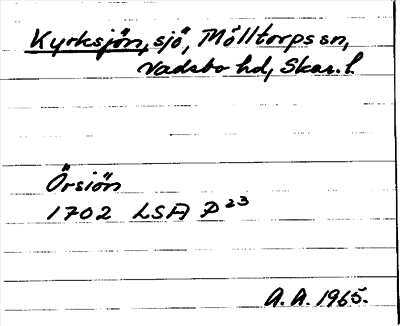 Kyrksjön, sjö, Mölltorps sn,
Vadsbo hd, Skar. l.
Örsiön
1702 LSA P23
A. A. 1965.